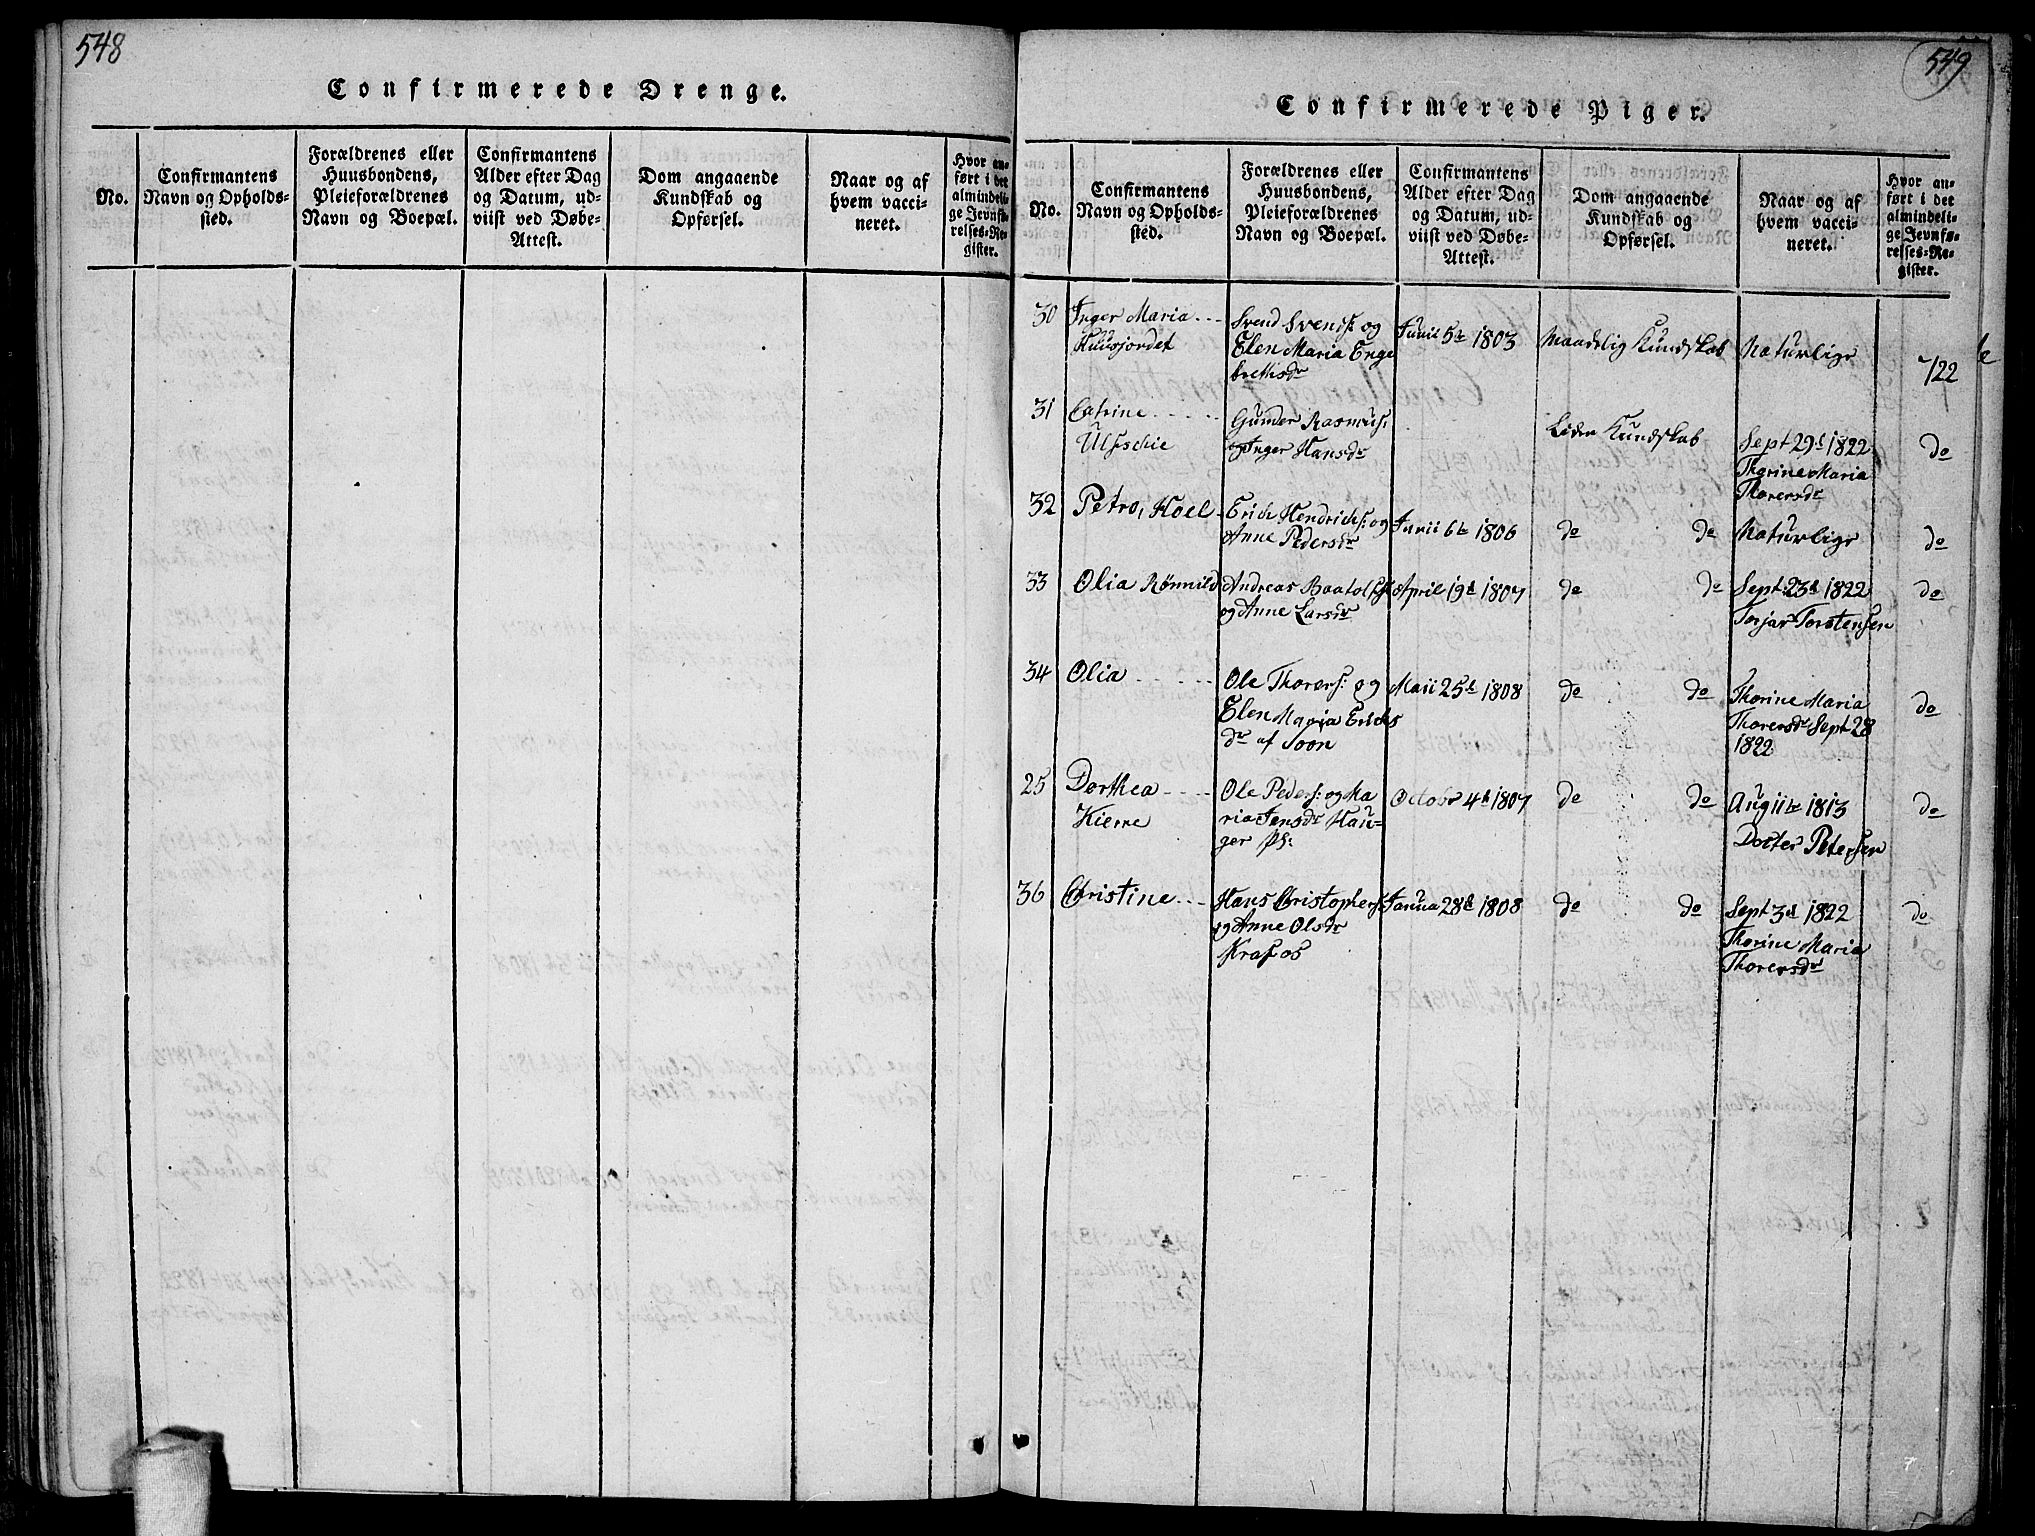 548
Confirmerede Drenge.
No.
Confirmantens
Navn og Opholds-
sted.
Forældrenes eller
Huusbondens,
Pleieforældrenes
Navn og Boepæl.
Confirmantens
Alder efter Dag
og Datum, ud-
viist ved Døbe-
Attest.
Dom angaaende
Kundskab og
Opførsel.
Naar og af
hvem vacci-
neret.
Hvor an-
ført i det
almindeli-
ge Jevnfø-
relses-Re-
gister.
549
Confirmerede Piger.
No.
Confirmantens
Navn og Opholds-
sted.
Forældrenes eller
Huusbondens,
Pleieforældrenes
Navn og Boepæl.
Confirmantens
Alder efter Dag
og Datum, ud-
viist ved Døbe-
Attest.
Dom angaaende
Kundskab og
Opførsel.
Naar og af
hvem vacci-
neret.
Hvor an-
ført i det
almindeli-
ge Jevnfø-
relses-Re-
gister.
30 Inger Maria
Huusjordet
Svend Svends: og
Elen Maria Enge
brethsdr
Junii 5te 1803
Maadelig Kundskab
Naturlige
722
31 Catrine
Gunder Rasmus:
og Inger Hansdr
Liden Kundskab
Sept 29d 1822
Thorine Maria
Thorersdr
do
32 Petro, Hoel
Erich Hendrichs: og
Anne Pedersdr
Junii 6te 1806
do do
Naturlige
do
33 Olia Rønnild
Andreas
og Anne Larsdr
April 19d 1807
do do
Sept 23d 1822
Torjar Torstensen
do
34 Olia
Ole Thorers: og
Elen Maria Erichs
dr af Soon
Maii 25d 1808
do do
Thorine Maria
Thorersdr Sept 28
1822
do
25 Dorthea
Kierre
Ole Peders: og Ma
ria Jensdr Hau-
ger
Octobr 4d 1807
do do
Aug 11te 1813
Docter Petersen
do
36 Christine
Hans Christophers:
og Anne Olsdr
Janua 28d 1808
do do
Sept 3d 1822
Thorine Maria
Thorersdr
do